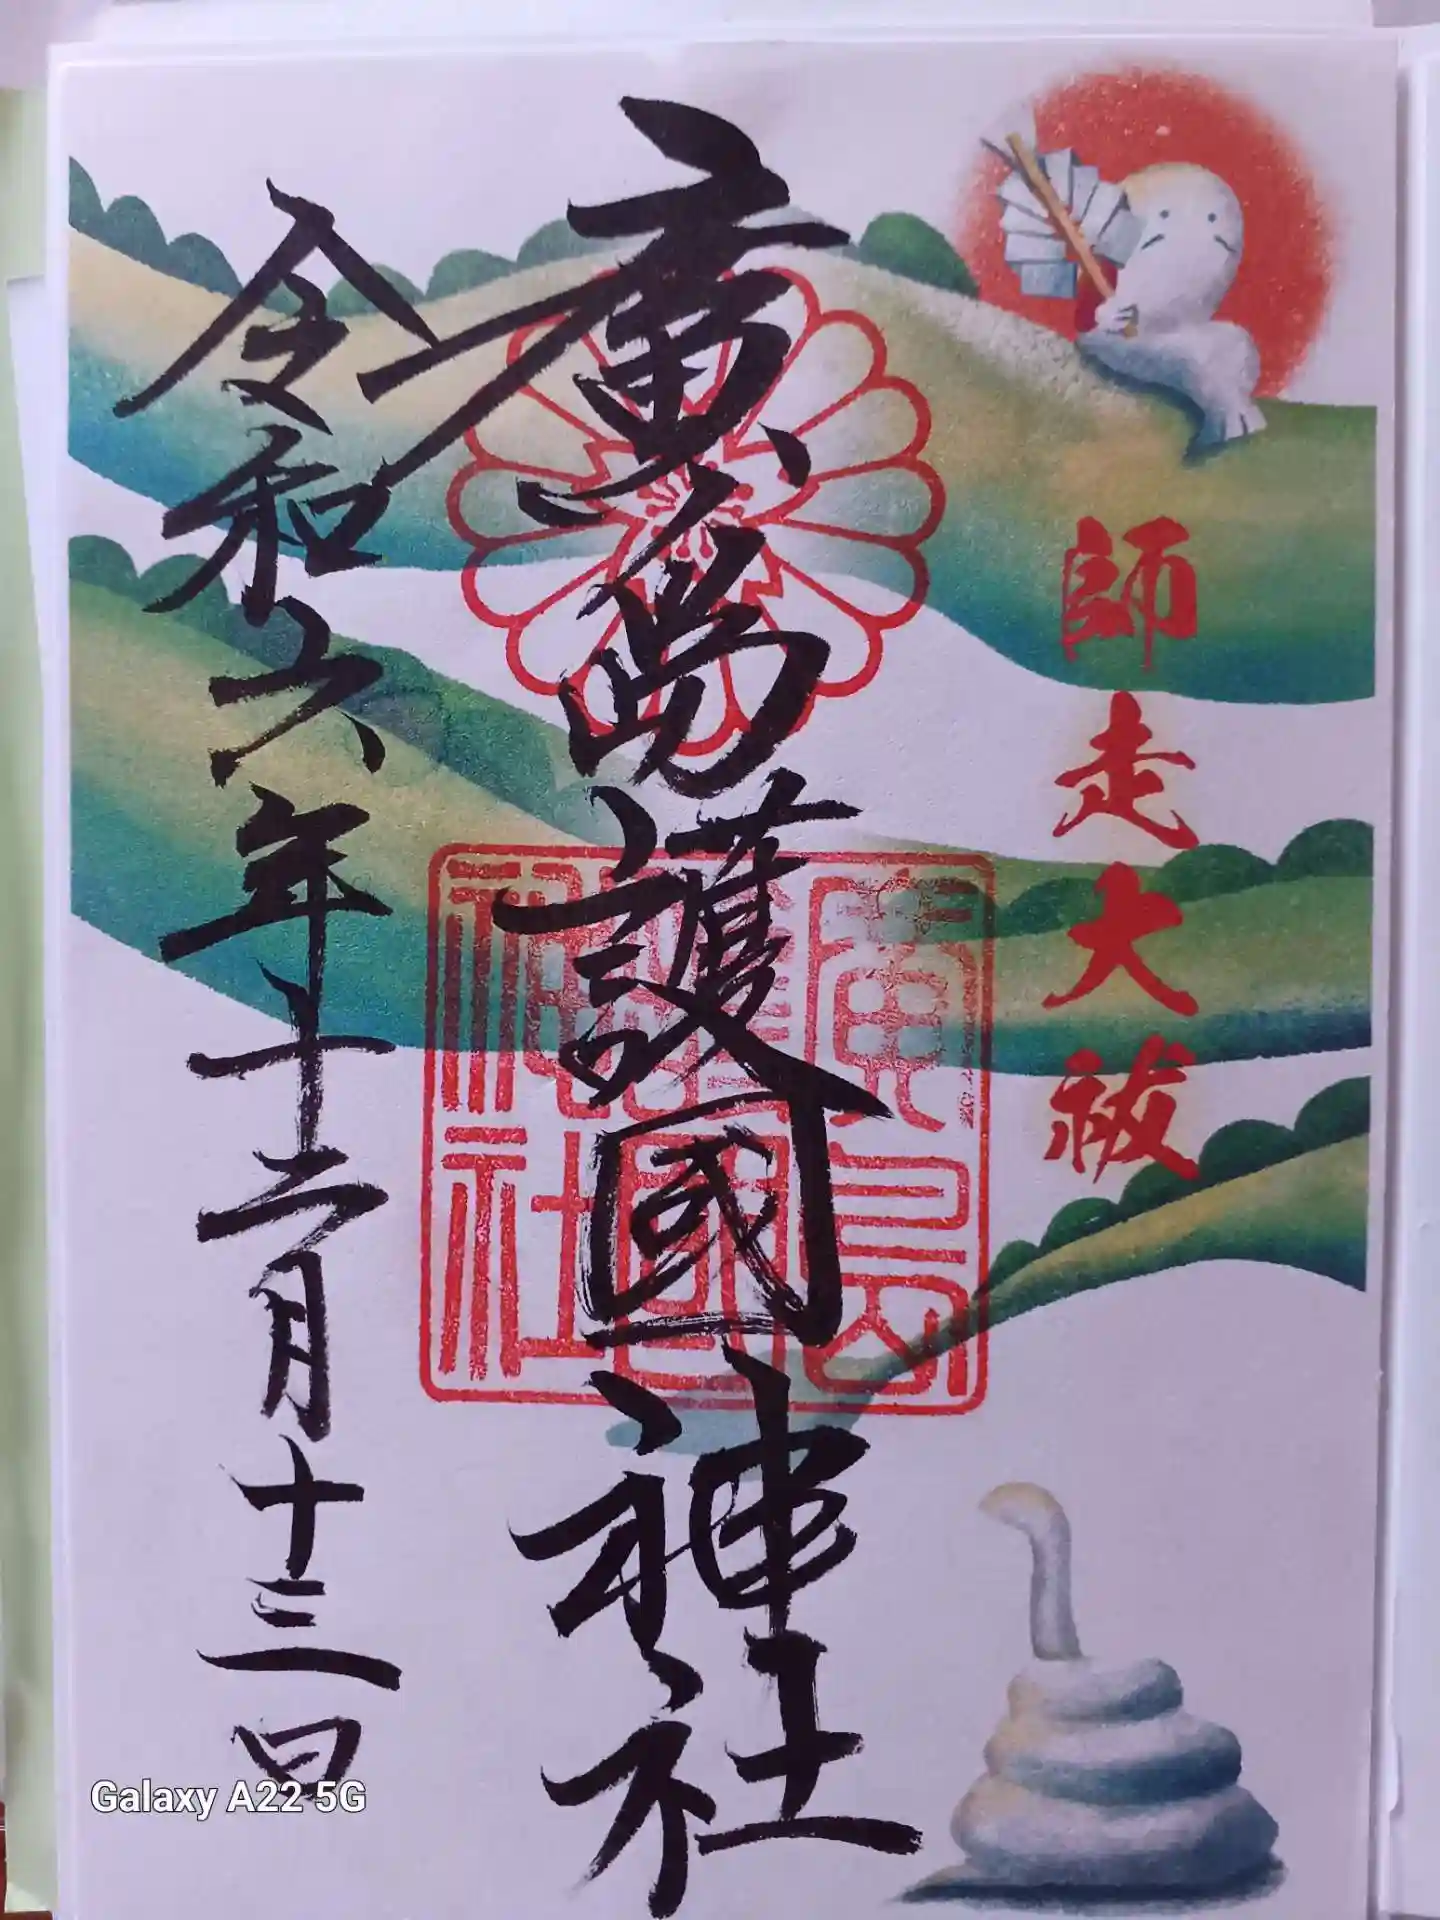 師走大祓
廣島護國神社
令和六年十二月十三日
廣島
護國
神社
Galaxy A22 5G